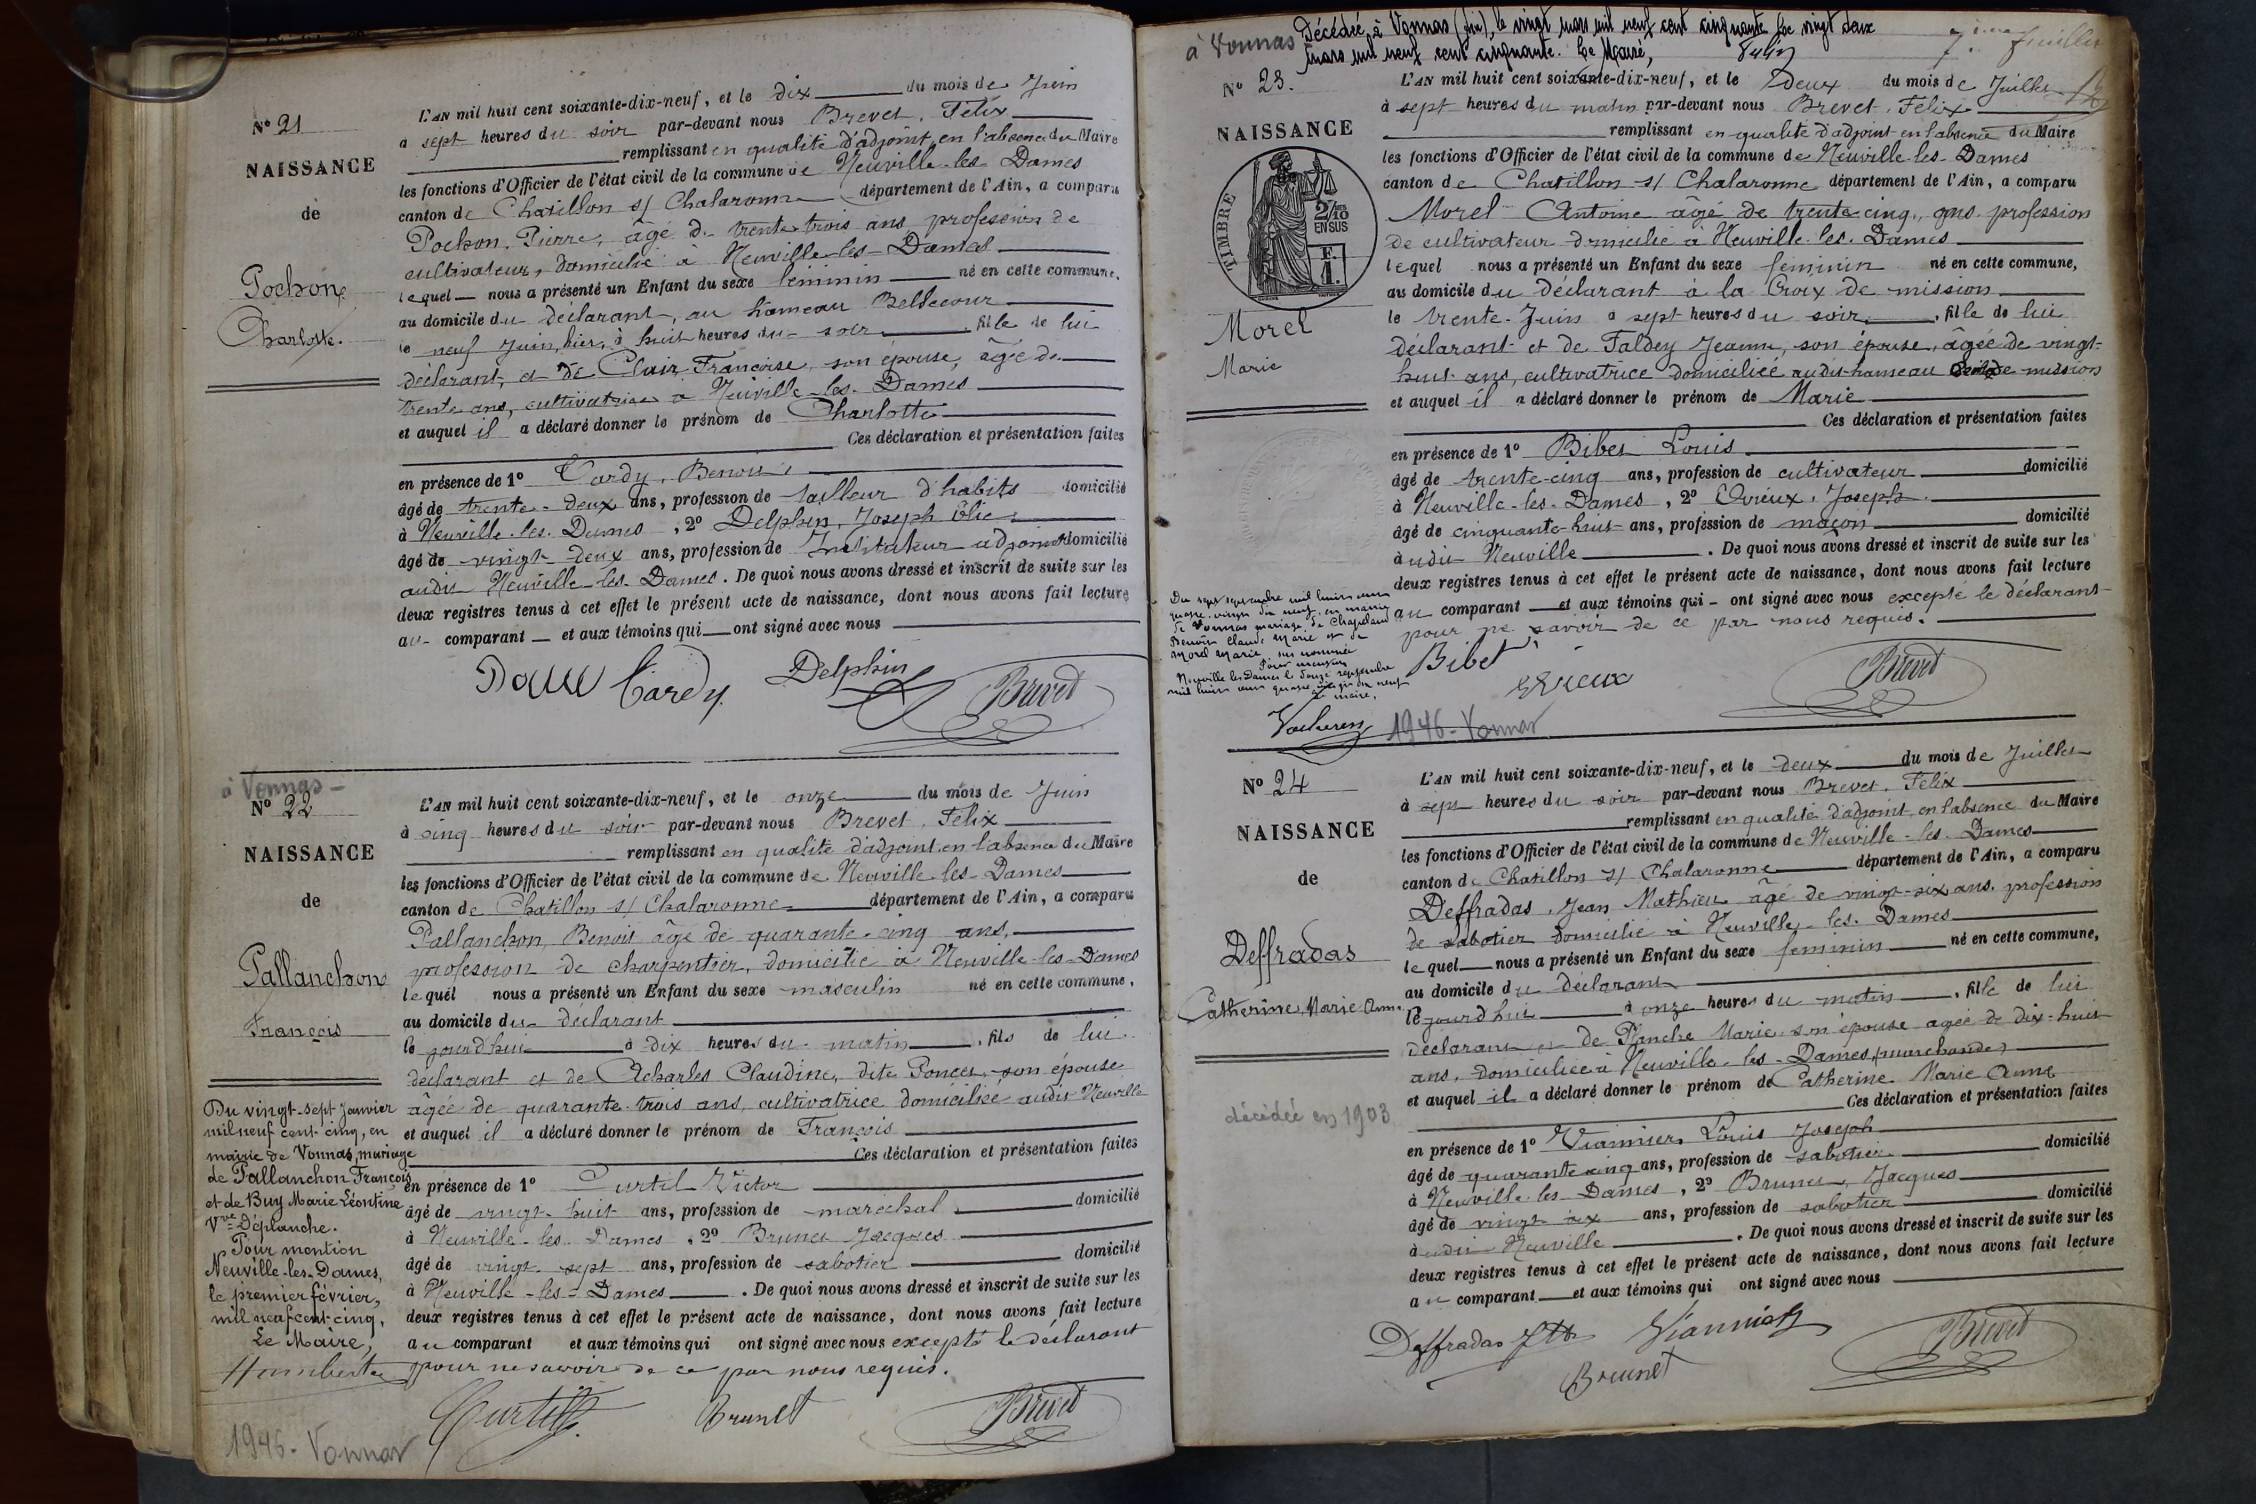 N° 21
NAISSANCE
de
Pochon
Charlotte.
L'AN mil huit cent soixante-dix-neuf, et le dix du mois de Juin
à sept heures du soir par-devant nous Brevet, Félix
remplissant en qualité d'adjoint en l'absence du Maire
les fonctions d'Officier de l'état civil de la commune de Neuville-les-Dames
canton de Chatillon s/ Chalaronne département de l'Ain, a comparu
Pochon, Pierre, âgé de trente trois ans profession de
cultivateur, domicilié à Neuville-les-Dames
lequel nous a présenté un Enfant du sexe féminin né en cette commune,
au domicile du déclarant, au hameau Bellecour
le neuf Juin, hier, à huit heures du soir, fille de lui
déclarant, et de Clair Françoise, son épouse, âgée de
trente ans, cultivatrice à Neuville-les-Dames
et auquel il a déclaré donner le prénom de Charlotte
Ces déclaration et présentation faites
en présence de 1° Cardy, Benoit,
âgé de trente-deux ans, profession de tailleur d'habits domicilié
à Neuville-les-Dames, 2° Delphin, Joseph Élie
âgé de vingt-deux ans, profession de Instituteur adjoint domicilié
audit Neuville-les-Dames. De quoi nous avons dressé et inscrit de suite sur les
deux registres tenus à cet effet le présent acte de naissance, dont nous avons fait lecture
au comparant et aux témoins qui ont signé avec nous
Cardy Delphin Brevet
à Vonnas
N° 22
NAISSANCE
de
Pallanchon
François
L'AN mil huit cent soixante-dix-neuf, et le onze du mois de Juin
à cinq heures du soir par-devant nous Brevet, Félix
remplissant en qualité d'adjoint en l'absence du Maire
les fonctions d'Officier de l'état civil de la commune de Neuville-les-Dames
canton de Chatillon s/ Chalaronne département de l'Ain, a comparu
Pallanchon, Benoit âgé de quarante-cinq ans,
profession de charpentier, domicilié à Neuville-les-Dames
lequel nous a présenté un Enfant du sexe masculin né en cette commune,
au domicile du déclarant
le jourd'hui à dix heures du matin, fils de lui
déclarant et de Acharles Claudine, dite Poncet, son épouse
âgée de quarante-trois ans, cultivatrice domiciliée audit Neuville
et auquel il a déclaré donner le prénom de François
Ces déclaration et présentation faites
en présence de 1° Curtil Victor
âgé de vingt-huit ans, profession de maréchal domicilié
à Neuville-les-Dames, 2° Brunet Jacques
âgé de vingt-sept ans, profession de sabotier domicilié
à Neuville-les-Dames. De quoi nous avons dressé et inscrit de suite sur les
deux registres tenus à cet effet le présent acte de naissance, dont nous avons fait lecture
au comparant et aux témoins qui ont signé avec nous excepté le déclarant
pour ne savoir de ce par nous requis.
Curtil Brunet Brevet
Du vingt-sept Janvier
mil neuf cent cinq, en
mairie de Vonnas, mariage
de Pallanchon François
et de Buy Marie Léontine
Vve Déplanche.
Pour mention
Neuville-les-Dames,
le premier février,
mil neuf cent cinq,
Le Maire,
Humbert
1946 - Vonnas
à Vonnas
Décédée à Vonnas (Ain), le vingt mars mil neuf cent cinquante. Le vingt deux
mars mil neuf cent cinquante. Le Maire,
7ième feuillet
N° 23.
NAISSANCE
TIMBRE
2/10 EN SUS
F. 1.
Morel
Marie
L'AN mil huit cent soixante-dix-neuf, et le deux du mois de Juillet
à sept heures du matin par-devant nous Brevet, Félix
remplissant en qualité d'adjoint en l'absence du Maire
les fonctions d'Officier de l'état civil de la commune de Neuville-les-Dames
canton de Chatillon s/ Chalaronne département de l'Ain, a comparu
Morel Antoine âgé de trente cinq, ans profession
de cultivateur domicilié à Neuville-les-Dames
lequel nous a présenté un Enfant du sexe féminin né en cette commune,
au domicile du déclarant à la Croix de mission
le trente Juin à sept heures du soir, fille de lui
déclarant et de Faldey Jeanne, son épouse, âgée de vingt-
huit ans, cultivatrice domiciliée audit hameau de mission
et auquel il a déclaré donner le prénom de Marie
Ces déclaration et présentation faites
en présence de 1° Bibet Louis
âgé de trente-cinq ans, profession de cultivateur domicilié
à Neuville-les-Dames, 2° Evieux, Joseph
âgé de cinquante-huit ans, profession de maçon domicilié
audit Neuville. De quoi nous avons dressé et inscrit de suite sur les
deux registres tenus à cet effet le présent acte de naissance, dont nous avons fait lecture
au comparant et aux témoins qui ont signé avec nous excepté le déclarant
pour ne savoir de ce par nous requis.
Bibet Evieux Brevet
Du sept septembre mil huit cent
quatre-vingt dix neuf, en mairie
de Vonnas mariage de Chapeland
Benoît Claude Marie et de
Morel Marie, sus nommée
Pour mention
Neuville les Dames le douze septembre
mil huit cent quatre vingt dix neuf
Le maire,
Vacheresz
1946 - Vonnas
N° 24
NAISSANCE
de
Deffradas
Catherine, Marie Anne
décédée en 1903
L'AN mil huit cent soixante-dix-neuf, et le deux du mois de Juillet
à sept heures du soir par-devant nous Brevet, Félix
remplissant en qualité d'adjoint en l'absence du Maire
les fonctions d'Officier de l'état civil de la commune de Neuville-les-Dames
canton de Chatillon s/ Chalaronne département de l'Ain, a comparu
Deffradas, Jean Mathieu âgé de vingt-six ans, profession
de sabotier domicilié à Neuville-les-Dames
lequel nous a présenté un Enfant du sexe féminin né en cette commune,
au domicile du déclarant
le jourd'hui à onze heures du matin, fille de lui
déclarant et de Planche Marie son épouse âgée de dix-huit
ans, domiciliée à Neuville-les-Dames, (marchande)
et auquel il a déclaré donner le prénom de Catherine Marie Anne
Ces déclaration et présentation faites
en présence de 1° Viannier, Louis Joseph
âgé de quarante cinq ans, profession de sabotier domicilié
à Neuville-les-Dames, 2° Brunet, Jacques
âgé de vingt six ans, profession de sabotier domicilié
audit Neuville. De quoi nous avons dressé et inscrit de suite sur les
deux registres tenus à cet effet le présent acte de naissance, dont nous avons fait lecture
au comparant et aux témoins qui ont signé avec nous
Deffradas Viannier Brevet
Brunet